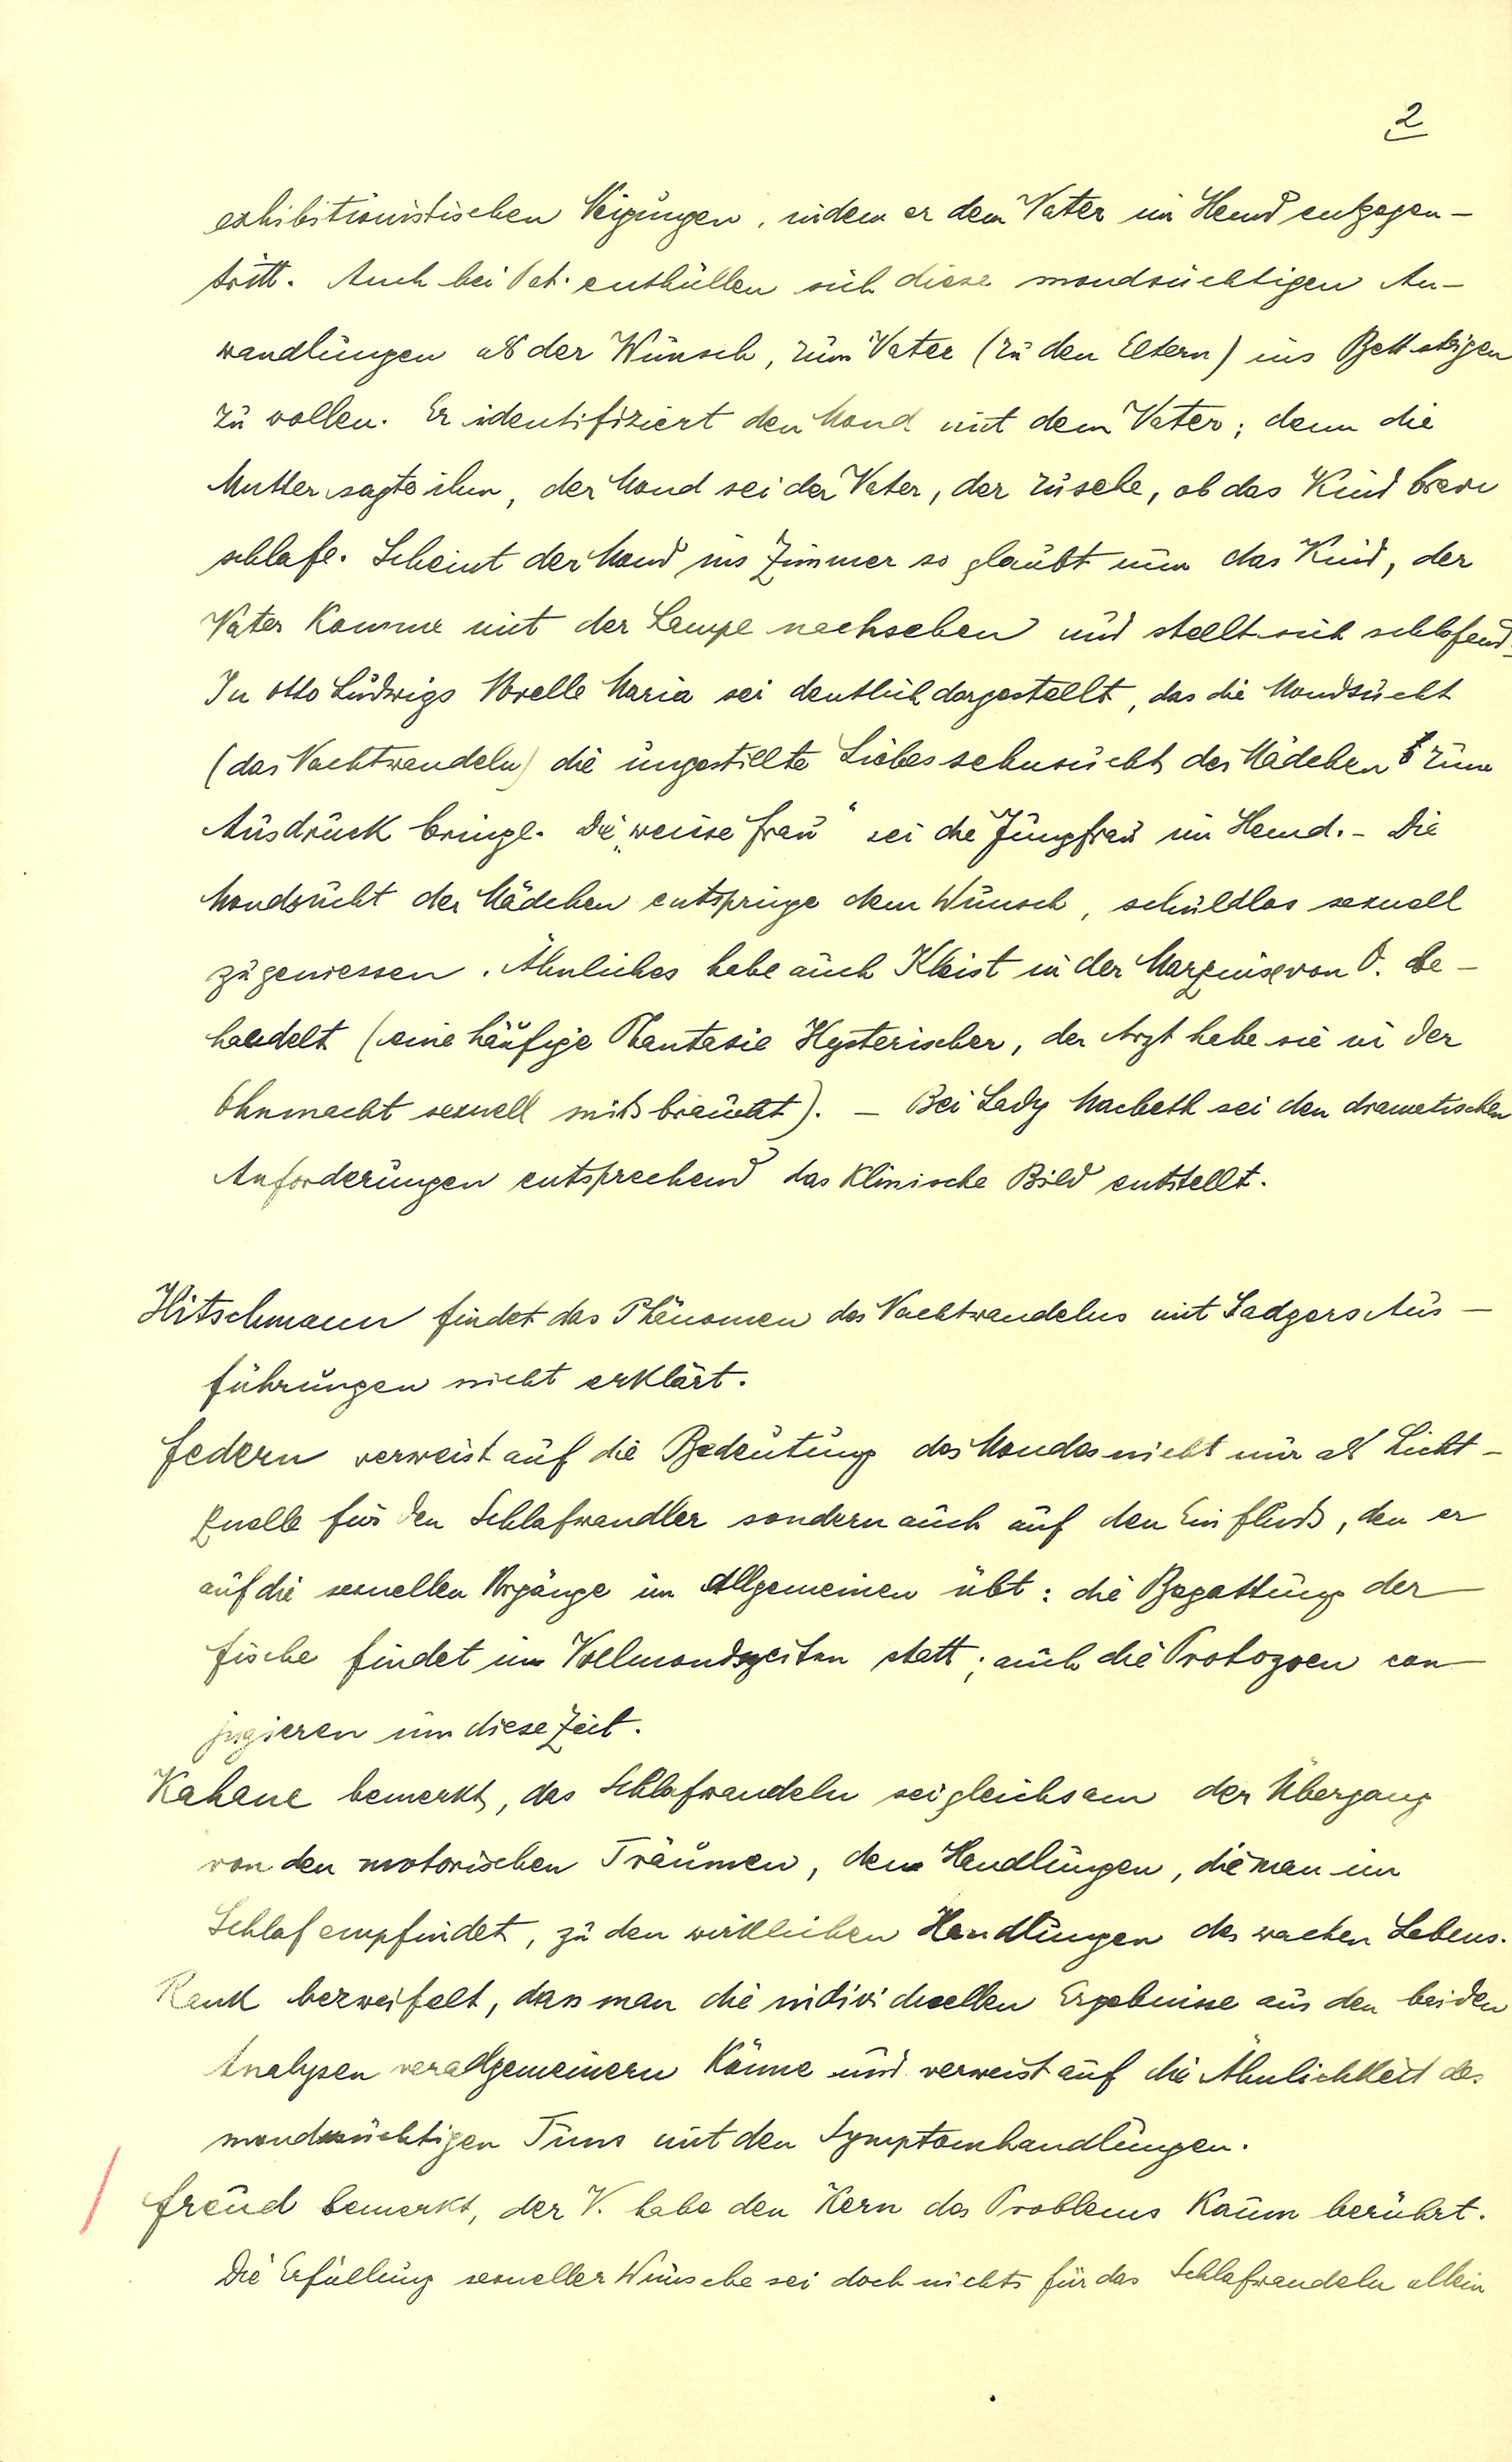 2
exhibitionistischen Neigungen, indem er dem Vater im Hemd entgegen-
tritt. Auch bei Pat. enthüllen sich diese mondsüchtigen An-
wandlungen als der Wunsch, zum Vater (zu den Eltern) ins Bett steigen
zu wollen. Er identifiziert den Mond mit dem Vater; denn die
Mutter sagte ihm, der Mond sei der Vater, der zusehe, ob das Kind brav
schlafe. Scheint der Mond ins Zimmer so glaubt nun das Kind, der
Vater komme mit der Lampe nachsehen und stellt sich schlafend.
In Otto Ludwigs Novelle Maria sei deutlich dargestellt, das die Mondsucht
(das Nachtwandeln) die ungestillte Liebessehnsucht des Mädchens zum
Ausdruck bringe. Die „weisse Frau" sei die Jungfrau im Hemd. - Die
Mondsucht der Mädchen entspringe dem Wunsch, schuldlos sexuell
zu geniessen. Ähnliches habe auch Kleist in der Marquise von O. be-
handelt (eine häufige Phantasie Hysterischer, der Arzt habe sie in der
Ohnmacht sexuell missbraucht). - Bei Lady Macbeth sei den dramatischen
Anforderungen entsprechend das klinische Bild entstellt.
Hitschmann findet das Phänomen des Nachtwandelns mit Sadgers Aus-
führungen nicht erklärt.
Federn verweist auf die Bedeutung des Mondes nicht nur als Licht-
quelle für den Schlafwandler sondern auch auf den Einfluss, den er
auf die sexuellen Vorgänge im Allgemeinen übt: die Begattung der
Fische findet in Vollmondszeiten statt; auch die Protozoen con
jugieren um diese Zeit.
Kahane bemerkt, das Schlafwandeln sei gleichsam der Übergang
von den motorischen Träumen, den Handlungen, die man im
Schlaf empfindet, zu den wirklichen Handlungen des wachen Lebens.
Rank bezweifelt, dass man die individuellen Ergebnisse aus den beiden
Analysen verallgemeinern könne und verweist auf die Ähnlichkeit des
mondsüchtigen Tuns mit den Symptomhandlungen.
Freud bemerkt, der V. habe den Kern des Problems kaum berührt.
Die Erfüllung sexueller Wünsche sei doch nichts für das Schlafwandeln allein